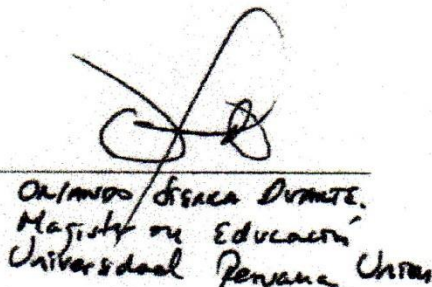 ORLANDO SIERRA DUARTE.
Magister en Educación
Universidad Peruana Union